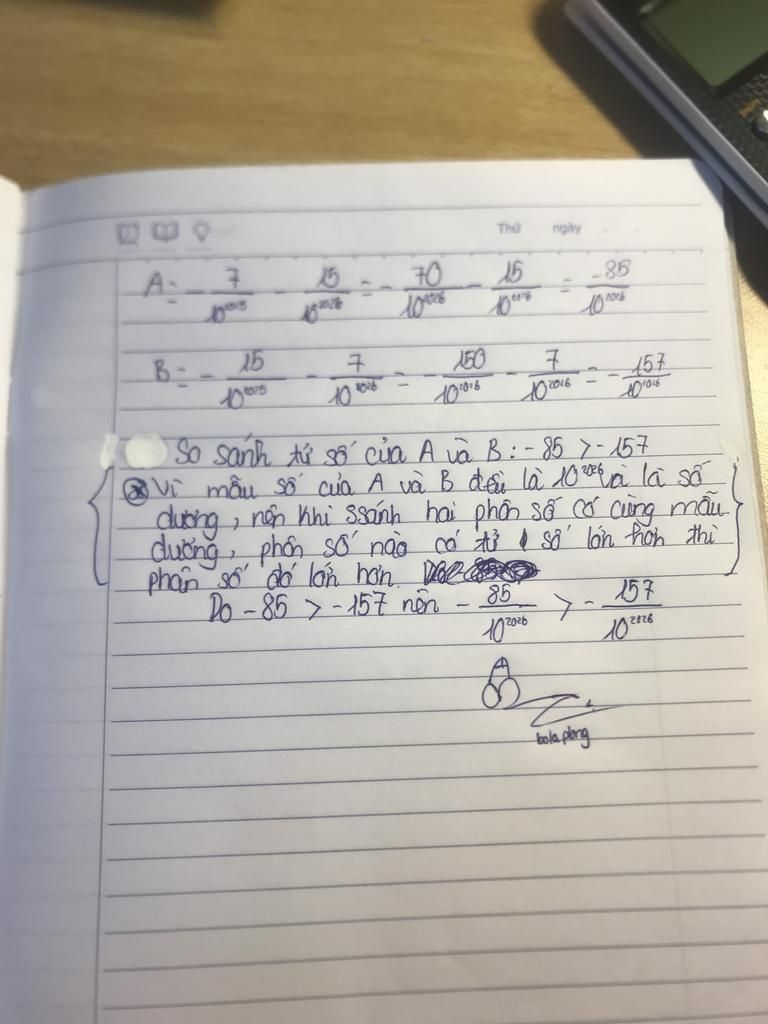 Thứ ngày
A = - 7/10²⁰²⁵ - 15/10²⁰²⁶ = - 70/10²⁰²⁶ - 15/10²⁰²⁶ = -85/10²⁰²⁶
B = - 15/10²⁰²⁵ - 7/10²⁰²⁶ = - 150/10²⁰²⁶ - 7/10²⁰²⁶ = - 157/10²⁰²⁶
So sánh tử số của A và B : - 85 > - 157
Vì mẫu số của A và B đều là 10²⁰²⁶ và là số
dương, nên khi ssánh hai phân số có cùng mẫu
dương, phân số nào có tử số lớn hơn thì
phân số đó lớn hơn.
Do - 85 > - 157 nên - 85/10²⁰²⁶ > - 157/10²⁰²⁶